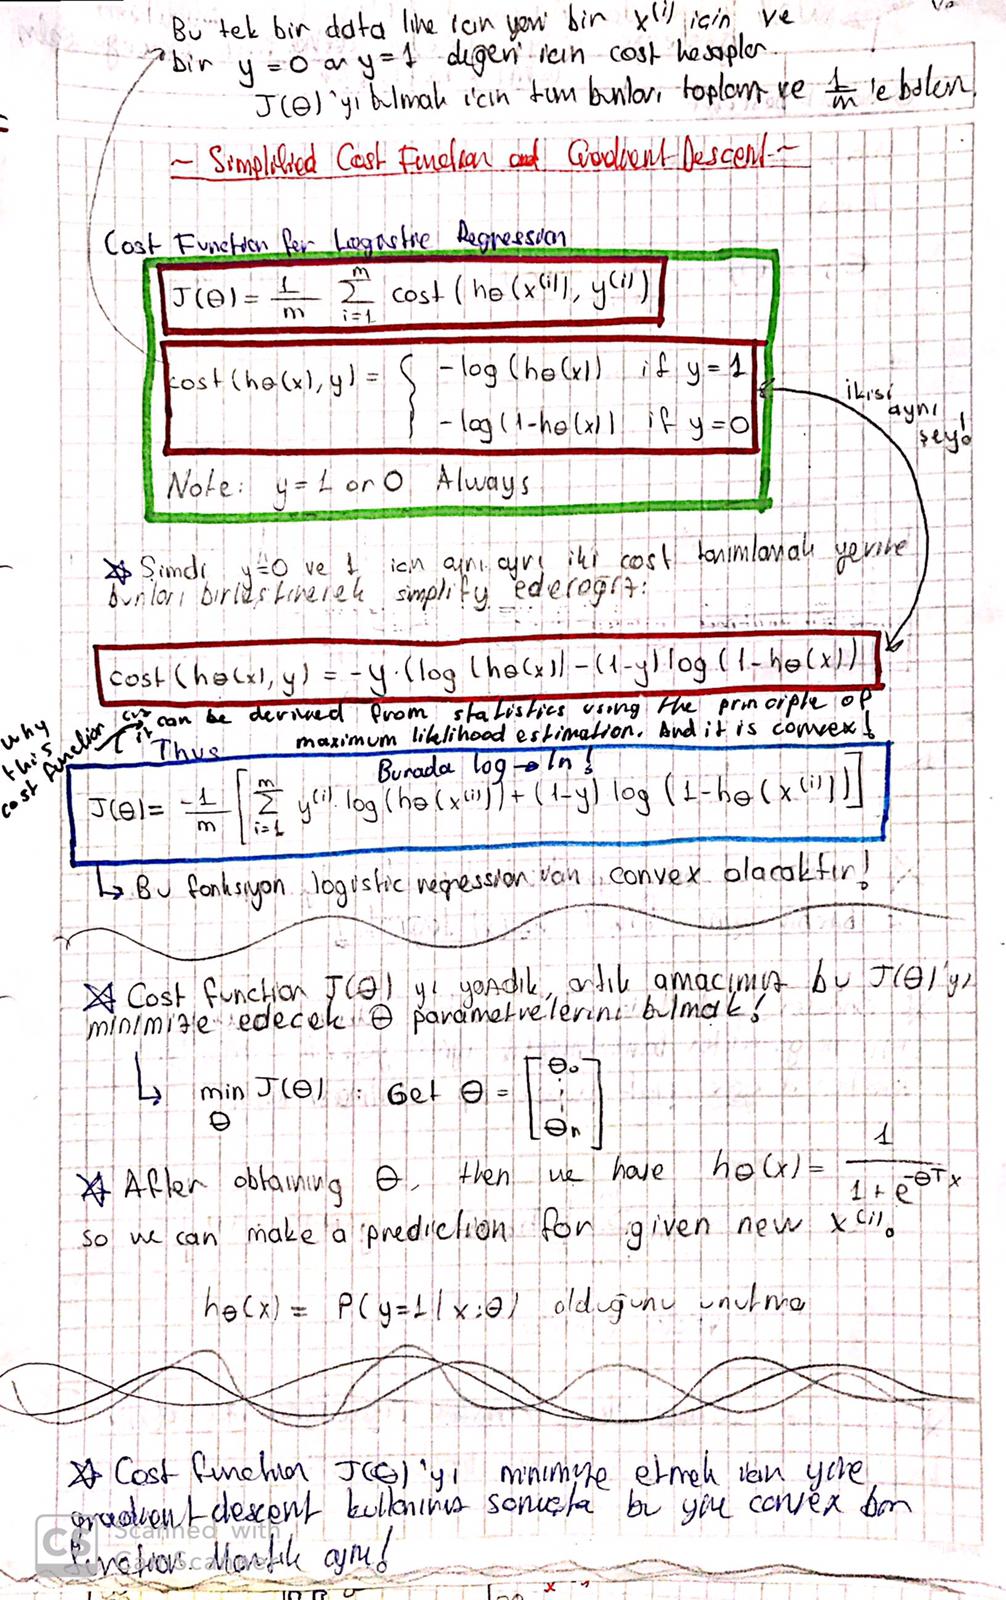 Bu tek bir data line icin yeni bir x⁽ⁱ⁾ icin ve
bir y=0 or y=1 değeri icin cost hesaplar.
J(θ)'yı bulmak icin tüm bunları toplarız ve 1/m 'e bölerız.
~ Simplified Cost Function and Gradient Descent ~
Cost Function for Logistic Regression
J(θ) = 1/m Σ_{i=1}^{m} cost(hθ(x⁽ⁱ⁾), y⁽ⁱ⁾)
cost(hθ(x), y) = { -log(hθ(x)) if y=1
-log(1-hθ(x)) if y=0
ikisi
aynı
şey!
Note: y=1 or 0 Always
☆ Simdi y=0 ve 1 icin ayrı ayrı iki cost tanımlamak yerine
bunları birlestirerek simplify edecegiz:
cost(hθ(x), y) = -y.(log(hθ(x)) - (1-y)log(1-hθ(x))
why
this
cost function
it can be derived from statistics using the principle of
maximum likelihood estimation. And it is convex!
Thus
Burada log → ln!
J(θ) = -1/m [Σ_{i=1}^{m} y⁽ⁱ⁾ log(hθ(x⁽ⁱ⁾)) + (1-y) log (1-hθ(x⁽ⁱ⁾))]
↳ Bu fonksiyon logistic regression icin convex olacaktır!
☆ Cost function J(θ) yı yazdık, artık amacımız bu J(θ)'yı
minimize edecek θ parametrelerini bulmak!
↳ min_θ J(θ) : Get θ = [θ₀ ⋮ θn]
☆ After obtaining θ, then we have hθ(x) = 1/(1+e^{-θᵀx})
so we can make a prediction for given new x⁽ⁱ⁾.
hθ(x) = P(y=1|x;θ) olduğunu unutma
☆ Cost function J(θ)'yı minimize etmek icin yine
gradient descent kullanırız sonuçta bu yine convex bir
function. Mantık aynı!
CS Scanned with
CamScanner